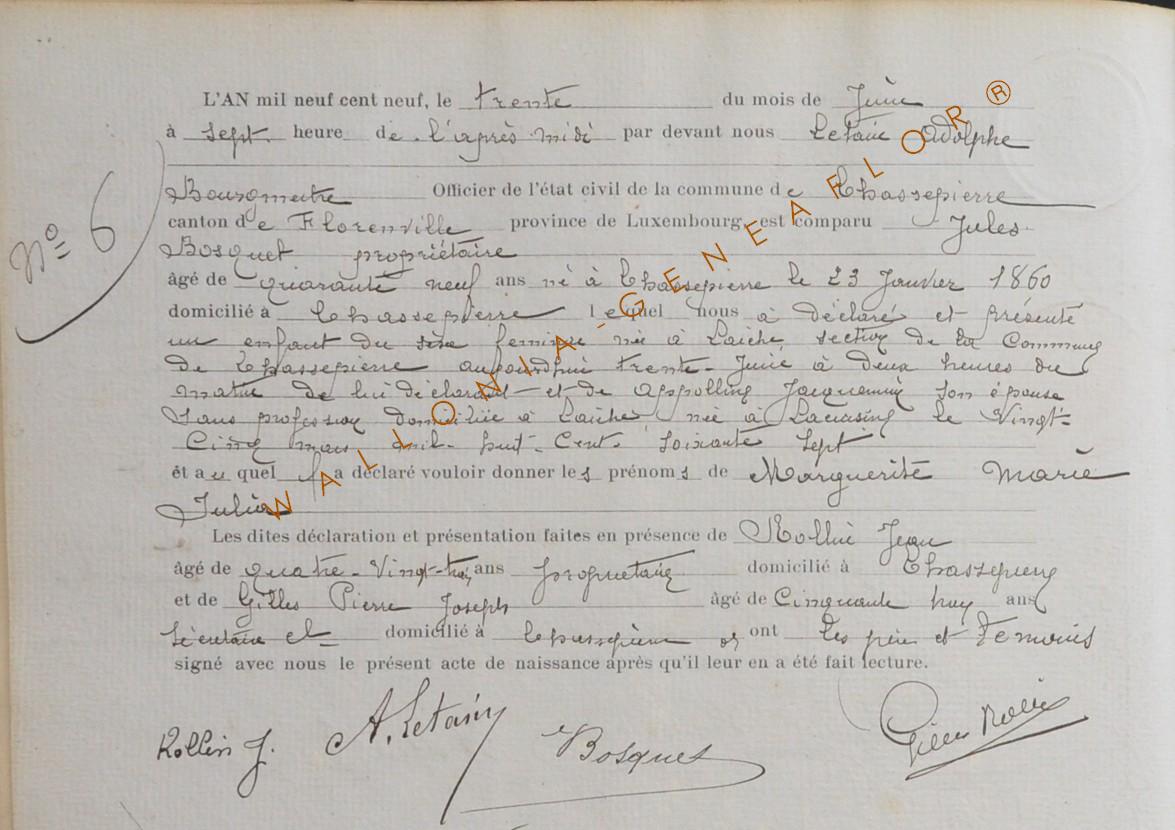 L'AN mil neuf cent neuf, le trente du mois de Juin
à sept heure de l'après midi par devant nous Letaic Adolphe
Bourgmestre Officier de l'état civil de la commune de Chassepierre
Nº 6
canton de Florenville province de Luxembourg, est comparu Jules
Bosquet propriétaire
âgé de quarante neuf ans né à Chassepierre le 23 Janvier 1860
domicilié à Chassepierre lequel nous a déclaré et présenté
un enfant du sexe feminin née à Laiche section de la Commune
de Chassepierre aujourdhui trente Juin à deux heures du
matin de lui déclarant et de Appolline Jacquemin son épouse
sans profession domiciliée à Laiche née à Lacuisine le Vingt-
Cinq mars mil huit Cent Soixante Sept
et au quel il a déclaré vouloir donner les prénoms de Marguerite Marie
Julia
Les dites déclaration et présentation faites en présence de Rollin Jean
âgé de quatre-Vingt-trois ans propriétaire domicilié à Chassepierre
et de Gilles Pierre Joseph âgé de Cinquante ans
Secrétaire et domicilié à Chassepierre ont les père et Temoins
signé avec nous le présent acte de naissance après qu'il leur en a été fait lecture.
Rollin J. A. Letaiy Bosquet Gilles
WALLONIA-GENEAFLOR®